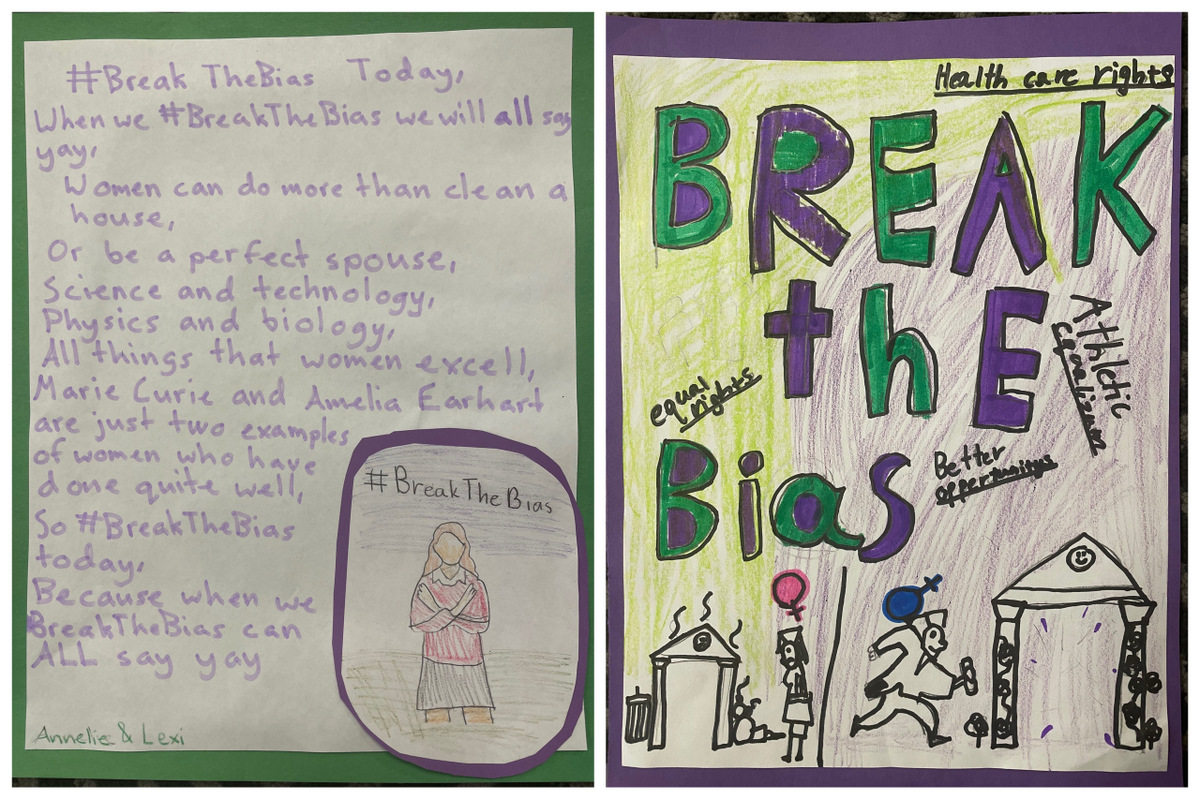 #Break TheBias Today,
When we #BreakTheBias we will all say
yay,
Women can do more than clean a
house,
Or be a perfect spouse,
Science and technology,
Physics and biology,
All things that women excell,
Marie Curie and Amelia Earhart
are just two examples
of women who have
done quite well,
So #BreakTheBias
today,
Because when we
BreakTheBias can
ALL say yay
Annelie & Lexi
#BreakTheBias
Health care rights
BREAK
thE
Athletic
equal
rights
Bias
Better